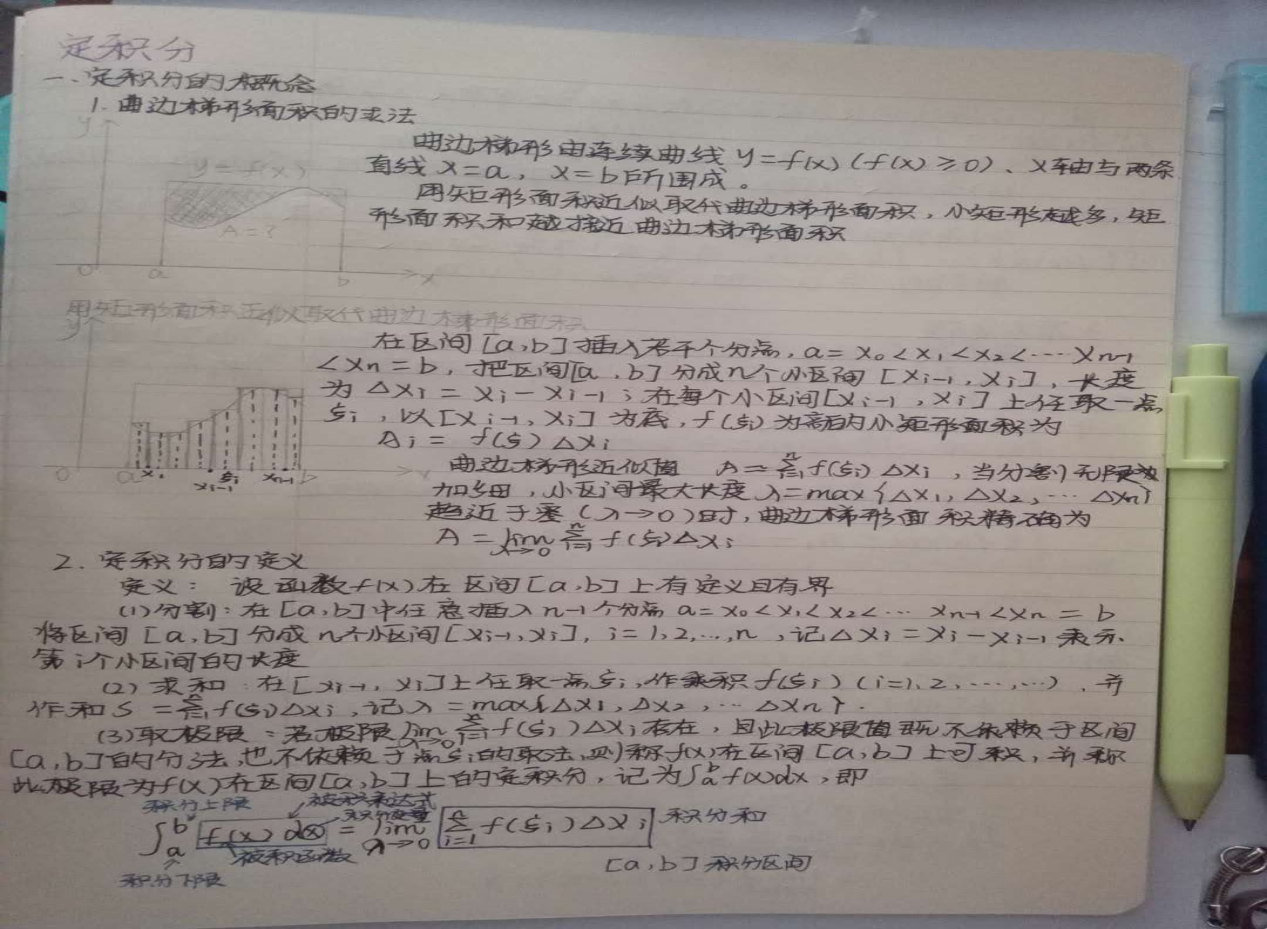 定积分
一、定积分的概念
1. 曲边梯形面积的求法
y
y = f(x)
A = ?
0 a b x
曲边梯形由连续曲线 y = f(x) (f(x) ≥ 0)、x轴与两条
直线 x = a, x = b 所围成。
用矩形面积近似取代曲边梯形面积，小矩形越多，矩
形面积和越接近曲边梯形面积
用矩形面积近似取代曲边梯形面积
y
0 a x₁ xᵢ₋₁ ξᵢ xₙ₋₁ b x
在区间 [a, b] 插入若干个分点，a = x₀ < x₁ < x₂ < ⋯ xₙ₋₁
< xₙ = b，把区间[a, b] 分成n个小区间 [xᵢ₋₁, xᵢ]，长度
为 Δxᵢ = xᵢ - xᵢ₋₁；在每个小区间[xᵢ₋₁, xᵢ] 上任取一点
ξᵢ，以 [xᵢ₋₁, xᵢ] 为底，f(ξᵢ) 为高的小矩形面积为
Aᵢ = f(ξ) Δxᵢ
曲边梯形近似值 A = Σⁿᵢ₌₁ f(ξᵢ) Δxᵢ，当分割无限
加细，小区间最大长度 λ = max{Δx₁, Δx₂, ⋯ Δxₙ}
趋近于零 (λ→0) 时，曲边梯形面积精确为
A = lim λ→0 Σⁿᵢ₌₁ f(ξᵢ) Δxᵢ
2. 定积分的定义
定义：设函数f(x)在区间[a, b]上有定义且有界
(1)分割：在[a, b]中任意插入n-1个分点 a = x₀ < x₁ < x₂ < ⋯ xₙ₋₁ < xₙ = b
将区间 [a, b] 分成n个小区间[xᵢ₋₁, xᵢ]，i = 1, 2, …, n，记Δxᵢ = xᵢ - xᵢ₋₁ 表示
第i个小区间的长度
(2) 求和：在[xᵢ₋₁, xᵢ]上任取一点ξᵢ，作乘积 f(ξᵢ) (i=1, 2, ……, …)，并
作和 S = Σⁿᵢ₌₁ f(ξᵢ) Δxᵢ，记 λ = max{Δx₁, Δx₂, ⋯ Δxₙ}.
(3)取极限：若极限 lim λ→0 Σⁿᵢ₌₁ f(ξᵢ) Δxᵢ 存在，且此极限值既不依赖于区间
[a, b]的分法，也不依赖于点ξᵢ的取法，则称f(x)在区间[a, b]上可积，并称
此极限为f(x)在区间[a, b]上的定积分，记为∫ₐᵇ f(x)dx，即
积分上限 被积表达式
积分变量
∫ₐᵇ f(x) dx = lim λ→0 Σⁿᵢ₌₁ f(ξᵢ) Δxᵢ 积分和
被积函数
积分下限
[a, b] 积分区间